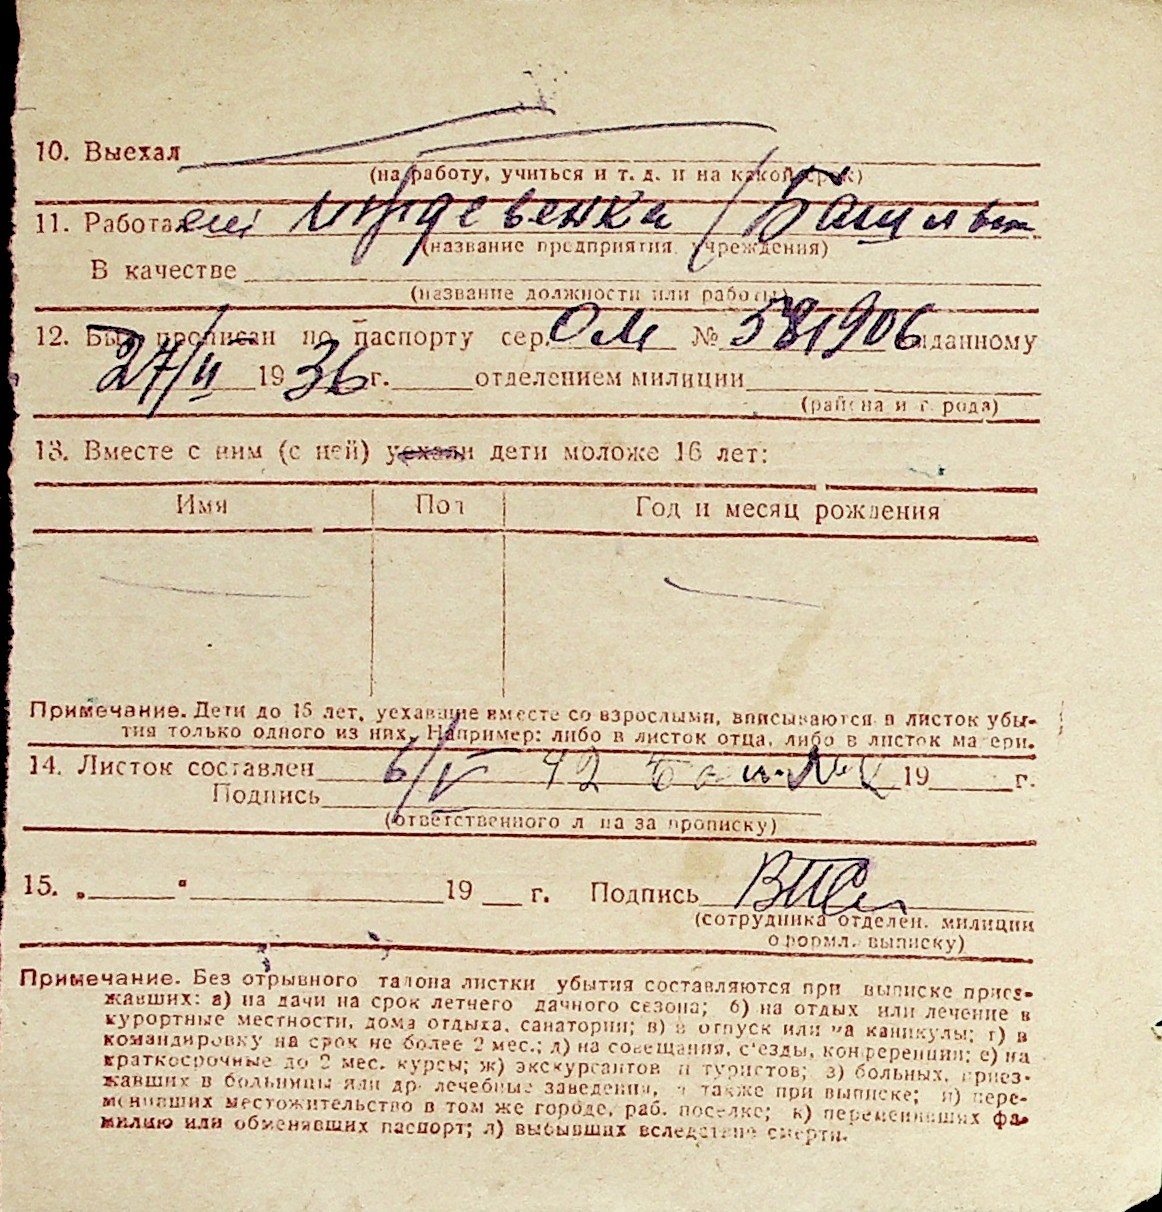 10. Выехал
(на работу, учиться и т. д. и на какой срок)
11. Работал иждевенка
(название предприятия, учреждения)
В качестве
(название должности или работы)
12. Был прописан по паспорту сер. ОМ № 581906 выданному
27/II 1936 г. отделением милиции
(района и города)
13. Вместе с ним (с ней) уехали дети моложе 16 лет:
Имя Пол Год и месяц рождения
Примечание. Дети до 15 лет, уехавшие вместе со взрослыми, вписываются в листок убы-
тия только одного из них. Например: либо в листок отца, либо в листок матери.
14. Листок составлен 6/V 42 19 г.
Подпись
(ответственного лица за прописку)
15. „ " 19 г. Подпись
(сотрудника отделен. милиции
оформл. выписку)
Примечание. Без отрывного талона листки убытия составляются при выписке приез-
жавших: а) на дачи на срок летнего дачного сезона; б) на отдых или лечение в
курортные местности, дома отдыха, санатории; в) в отпуск или на каникулы; г) в
командировку на срок не более 2 мес.; д) на совещания, с'езды, конференции; е) на
краткосрочные до 2 мес. курсы; ж) экскурсантов и туристов; з) больных, приез-
жавших в больницы или др. лечебные заведения, а также при выписке; и) пере-
менивших местожительство в том же городе, раб. поселке; к) переменивших фа-
милию или обменявших паспорт; л) выбывших вследствие смерти.